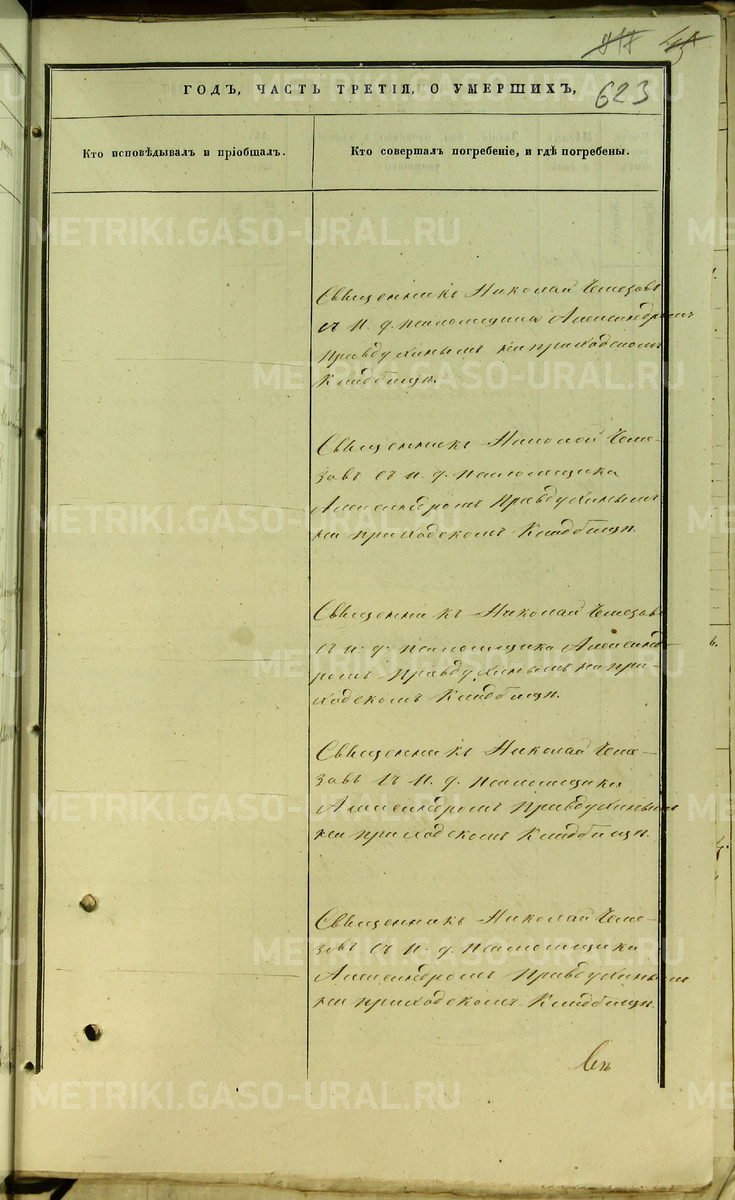 623
ГОДЪ, ЧАСТЬ ТРЕТІЯ, О УМЕРШИХЪ,
Кто исповѣдывалъ и пріобщалъ.
Кто совершалъ погребеніе, и гдѣ погребены.
Священникъ Николай Чемезовъ
съ и. д. псаломщика Александромъ
Правдухинымъ на приходскомъ
кладбищѣ.
Священникъ Николай Чеме-
зовъ съ и. д. псаломщика
Александромъ Правдухинымъ
на приходскомъ кладбищѣ.
Священникъ Николай Чемезовъ
съ и. д. псаломщика Александ-
ромъ Правдухинымъ на при-
ходскомъ кладбищѣ.
Священникъ Николай Чеме-
зовъ съ и. д. псаломщика
Александромъ Правдухинымъ
на приходскомъ кладбищѣ.
Священникъ Николай Чеме-
зовъ съ и. д. псаломщика
Александромъ Правдухинымъ
на приходскомъ кладбищѣ.
METRIKI.GASO-URAL.RU